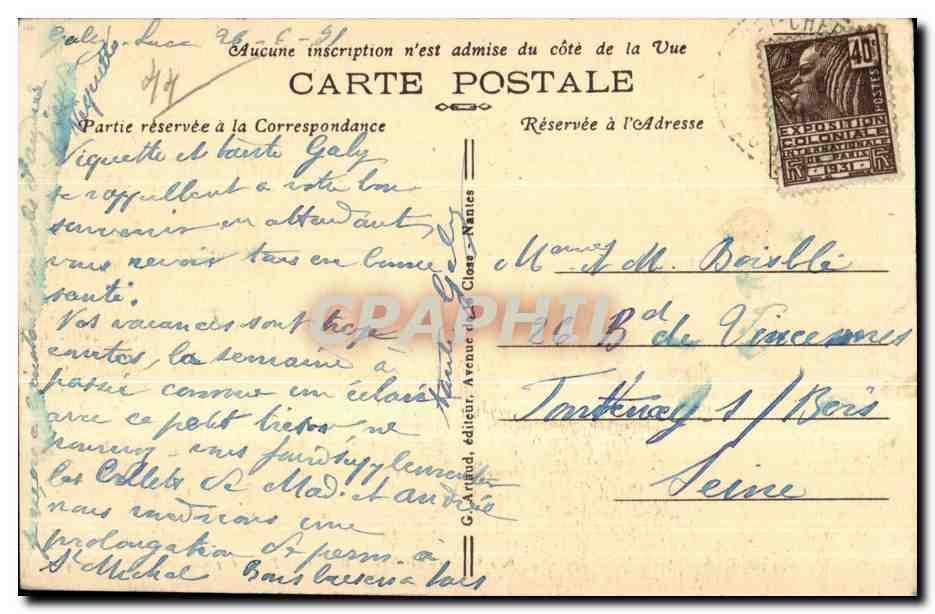 Aucune inscription n'est admise du côté de la Vue
CARTE POSTALE
Partie réservée à la Correspondance
Réservée à l'Adresse
44
Viquette et tante Galy
se rappellent à votre bon
souvenir en attendant
vous revoir tous en bonne
santé.
Vos vacances sont trop
courtes, la semaine à
passé comme un éclair
avec ce petit trésor ne
pourriez-vous faire supplementer
les Billets de Mad. et Andrée
nous voudrions une
prolongation de perm à
St Michel Bons baisers a tous
tante Galy
Viquette
G. Artaud, éditeur, Avenue de la Close - Nantes
40c
POSTES
EXPOSITION
COLONIALE
INTERNATIONALE
DE PARIS
1931
Mme et M. Boisblé
26 Bd de Vincennes
Fontenay s/Bois
Seine
CPAPHIL